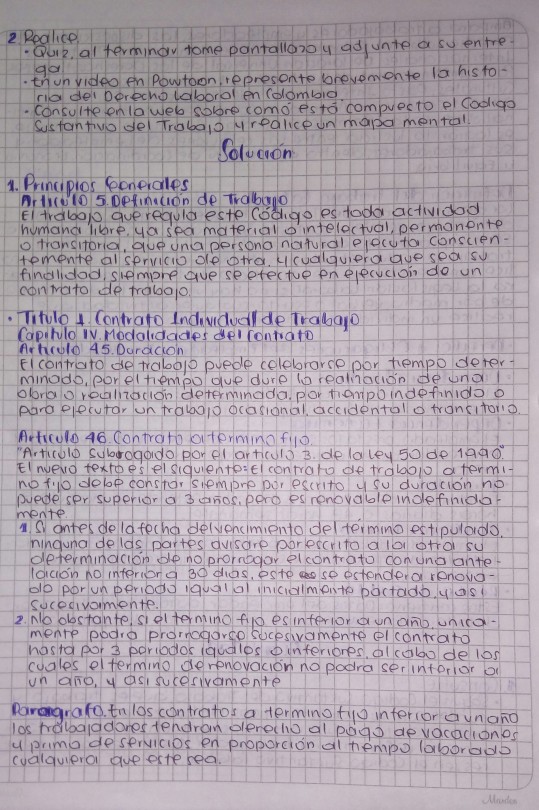 2. Realice
• Quiz, al terminar tome pantallazo y adjunte a su entre-
ga.
• En un video en Powtoon, represente brevemente la histo-
ria del Derecho Laboral en Colombia
• Consulte en la web sobre como está compuesto el Codigo
Sustantivo del Trabajo y realice un mapa mental.
Solución
1. Principios Generales
Articulo 5. Definición de Trabajo
El trabajo que regula este Código es toda actividad
humana libre, ya sea material o intelectual, permanente
o transitoria, que una persona natural ejecuta conscien-
temente al servicio de otra, y cualquiera que sea su
finalidad, siempre que se efectue en ejecución de un
contrato de trabajo.
• Titulo 1. Contrato Individual de Trabajo
Capitulo IV. Modalidades del Contrato
Articulo 45. Duración
El contrato de trabajo puede celebrarse por tiempo deter-
minado, por el tiempo que dure la realización de una
obra o realización determinada, por tiempo indefinido o
para ejecutar un trabajo ocasional, accidental o transitorio.
Articulo 46. Contrato a termino fijo.
"Articulo Subrogado por el articulo 3. de la Ley 50 de 1990."
El nuevo texto es el siguiente: El contrato de trabajo a termi-
no fijo debe constar siempre por escrito y su duración no
puede ser superior a 3 años, pero es renovable indefinida-
mente.
1. Si antes de la fecha del vencimiento del término estipulado,
ninguna de las partes avisare por escrito a la otra su
determinación de no prorrogar el contrato con una ante-
lación no inferior a 30 dias, este se estendera renova-
do por un periodo igual al inicialmente pactado, y asi
sucesivamente.
2. No obstante, si el termino fijo es inferior a un año, unica-
mente podra prorrogarse sucesivamente el contrato
hasta por 3 periodos iguales o inferiores, al cabo de los
cuales el termino de renovación no podra ser inferior a
un año, y asi sucesivamente
Paragrafo. En los contratos a termino fijo inferior a un año
los trabajadores tendran derecho al pago de vacaciones
y prima de servicios en proporción al tiempo laborado
cualquiera que este sea.